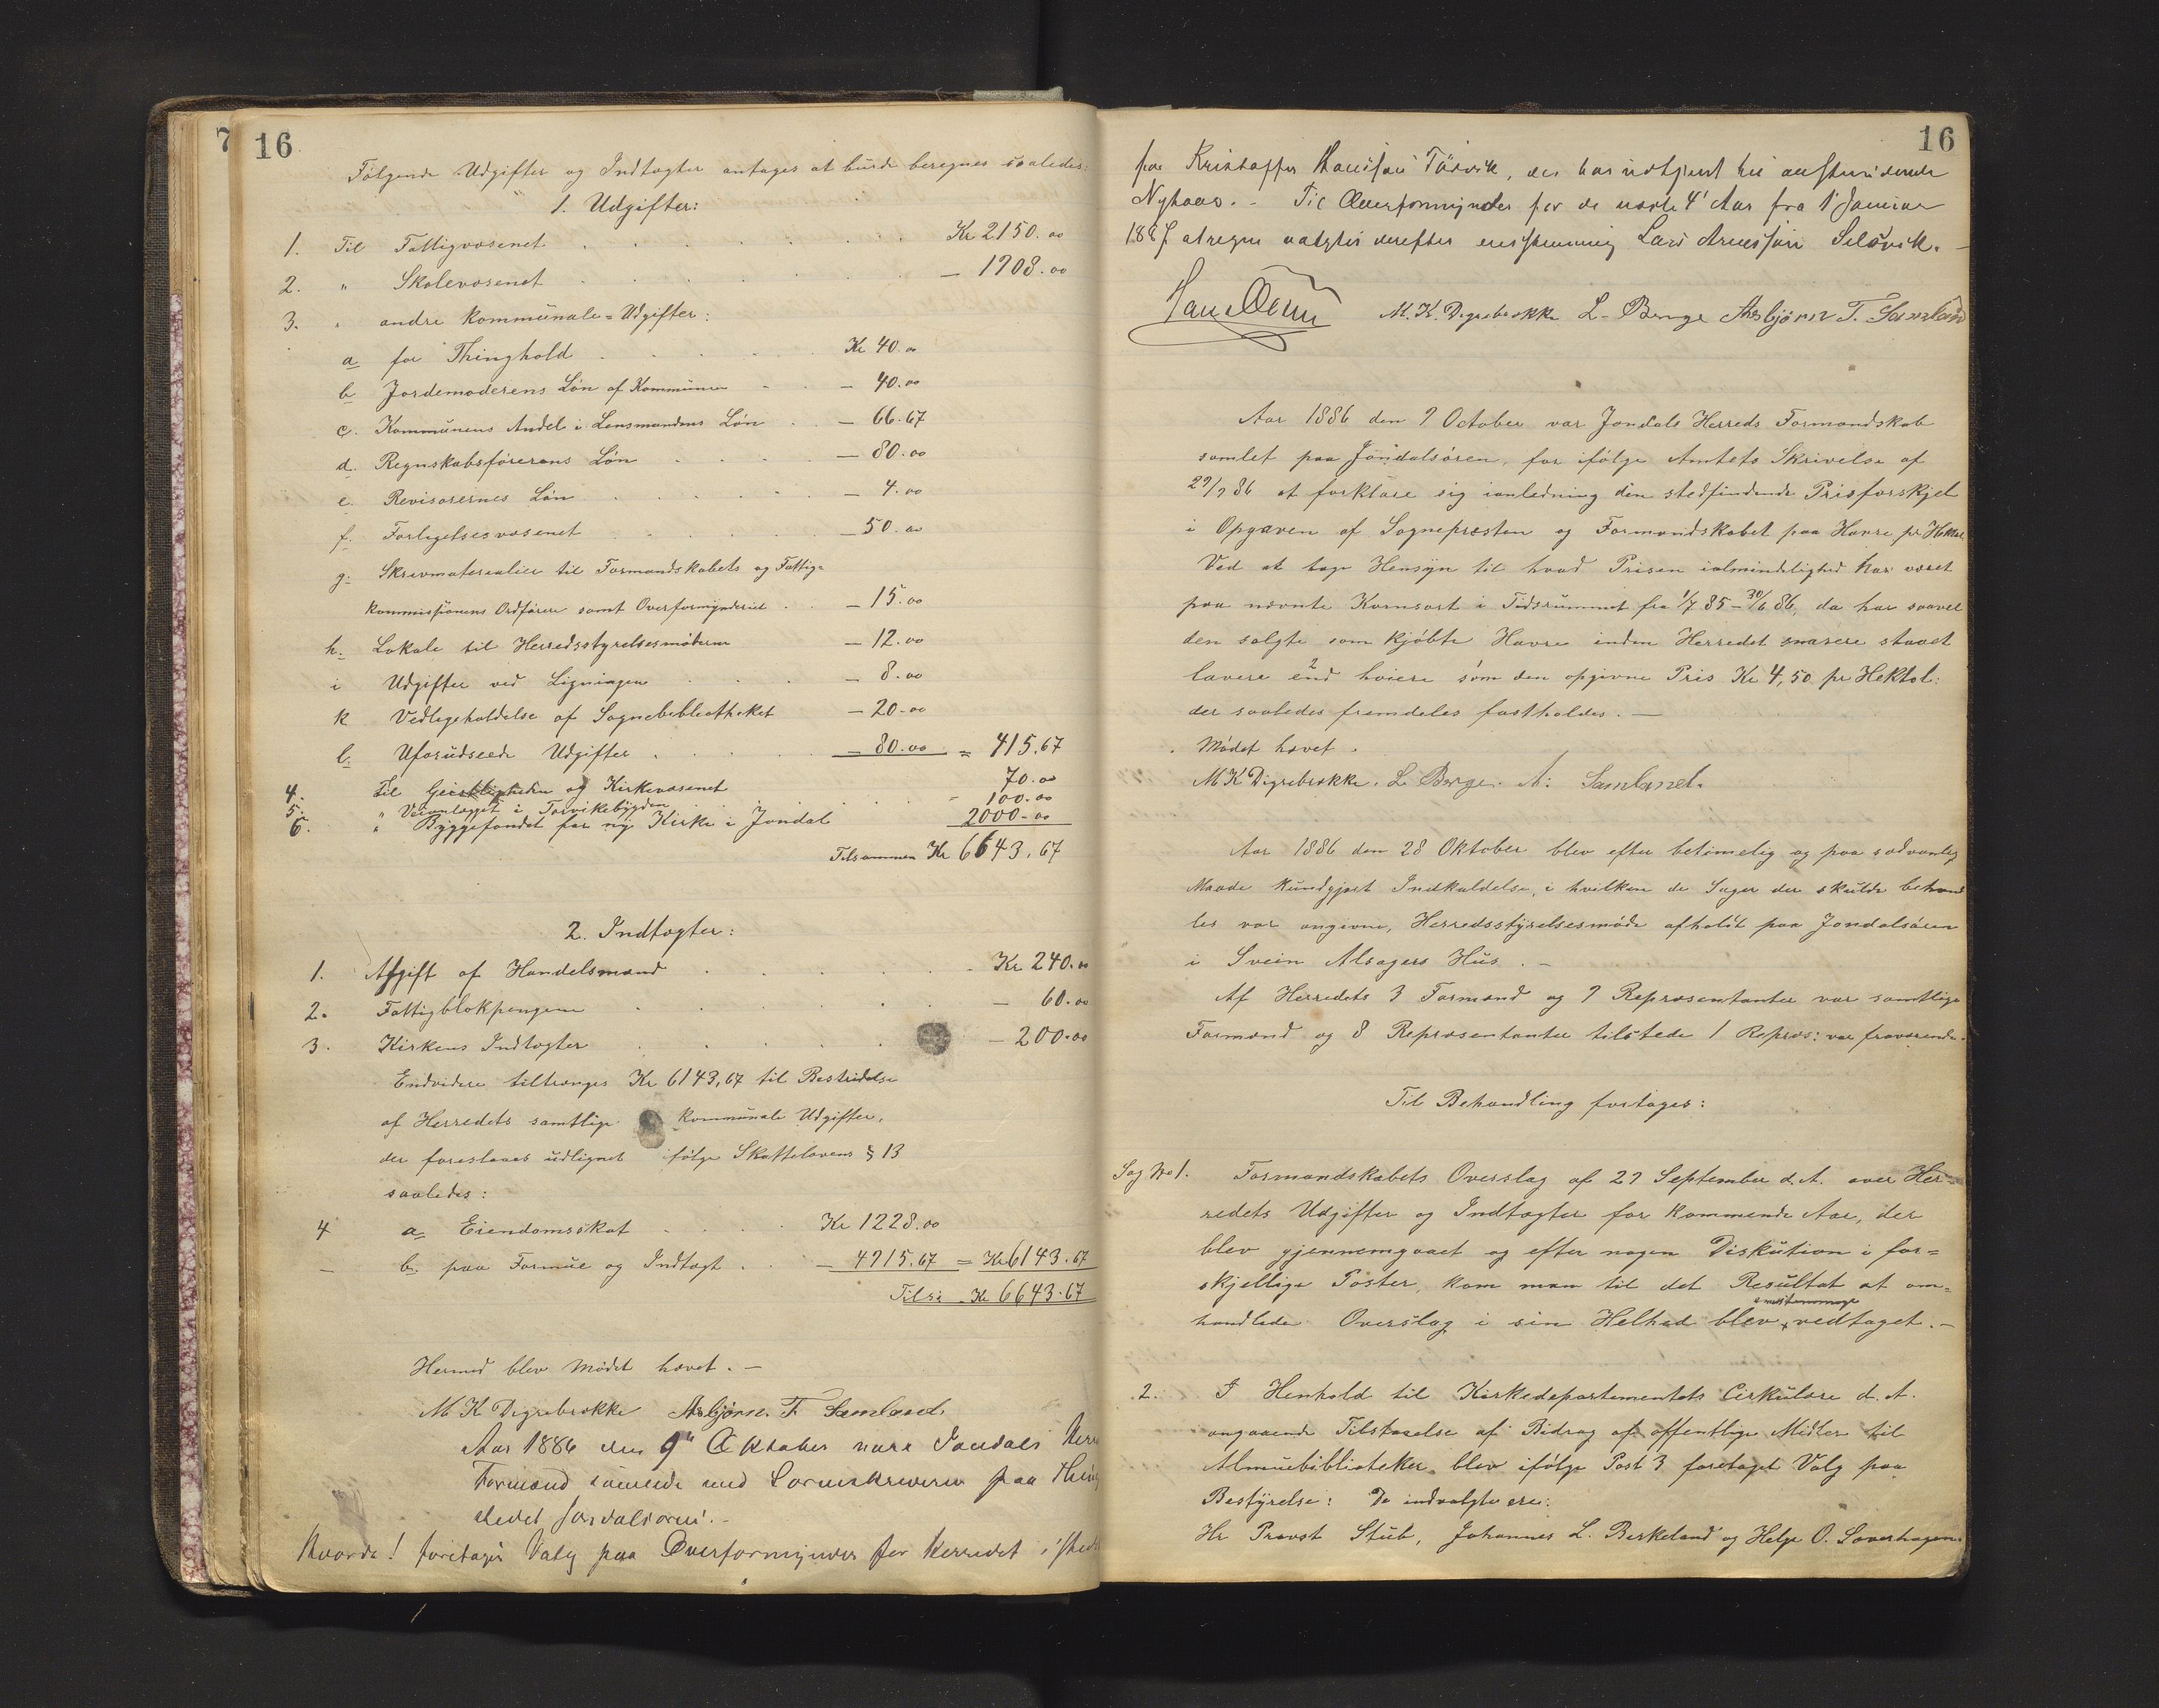 7
16
Følgende Udgifter og Indtægter antages at burde beregnes saaledes:
1. Udgifter:
1. Til Fattigvæsenet Kr 2150.00
2. " Skolevæsenet — 1908.00
3. " andre kommunale-Udgifter:
a for Thinghold Kr 40.00
b Jordemoderens Løn af Kommunen — 40.00
c. Kommunens Andel i Lensmandens Løn — 66.67
d. Regnskabsførerens Løn — 80.00
e. Revisorernes Løn — 4.00
f. Forligelsesvæsenet — 50.00
g. Skrivmaterialier til Formandskabets og Fattig-
kommissionens Ordførere samt Overformynderiet — 15.00
h. Lokale til Herredsstyrelsesmøderne — 12.00
i Udgifter ved Ligningen — 8.00
k Vedligeholdelse af Sognebibliotheket — 20.00
l. Uforudseede Udgifter — 80.00 = 415.67
4. Til Geistligheden og Kirkevæsenet 70.00
5. " Veianlægget i Torvikebygden — 100.00
6. " Byggefondet for ny Kirke i Jondal 2000.00
Tilsammen Kr 6643.67
2. Indtægter:
1. Afgift af Handelsmænd Kr 240.00
2. Fattigblokpengene — 60.00
3. Kirkens Indtægter — 200.00
Endvidere tiltrænges Kr 6143,67 til Bestridelse
af Herredets samtlige kommunale Udgifter,
der foreslaaes udlignet ifølge Skattelovens § 13
saaledes:
4 a Eiendomsskat Kr 1228.00
— b. paa Formue og Indtægt — 4915.67 = Kr 6143.67
Tils: Kr 6643.67
Hermed blev Mødet hævet. —
M K Digrebrække Asbjørn T. Samland
Aar 1886 den 9de Oktober vare Jondals Herr
Formænd samlede med Sorenskriveren paa Thing
stedet Jondalsøren. –
Hvorda! foretages Valg paa Overformynder for Herredet i sted
16
for Kristoffer Hansson Torvik, der har udtjent sin
Nyhaas. - Til Overformynder for de næste 4 Aar fra 1 Januar
1887 at regne valgtes derefter enstemmig Lars Arnesson Selsvik. —
M. K. Digrebrække L. Berge Asbjørn T. Samland
Aar 1886 den 9 October var Jondals Herreds Formandskab
samlet paa Jondalsøren, for ifølge Amtets Skrivelse af
29/9 86 at forklare sig ianledning den stedfindende Prisforskjel
i Opgaven af Sognepresten og Formandskabet paa Havre pr Hektol
Ved at tage Hensyn til hvad Prisen ialmindelighed har været
paa nævnte Kornsort i Tidsrummet fra 1/7 85 – 30/6 86, da har saavel
den solgte som kjøbte Havre inden Herredet snarere staaet
lavere end høiere som den opgivne Pris Kr 4,50 pr Hektol:
der saaledes fremdeles fastholdes. —
Mødet hævet.
M K Digrebrække. L Berge. A: Samland.
Aar 1886 den 28 Oktober blev efter betimelig og paa sædvanlig
Maade kundgjort Indkaldelse, i hvilken de Sager der skulde behand
les var angivne, Herredsstyrelsesmøde afholdt paa Jondalsøren
i Svein Alsagers Hus. –
Af Herredets 3 Formænd og 9 Repræsentanter var samtlige
Formænd og 8 Repræsentanter tilstede 1 Repræs: var fraværende.
Til Behandling foretages:
Sag No 1. Formandskabets Overslag af 29 September d.A. over Her-
redets Udgifter og Indtægter for kommende Aar, der
blev gjennemgaaet og efter nogen Diskution i for-
skjellige Poster, kom man til det Resultat at om-
handlede Overslag i sin Helhed blev enstemmig vedtaget. —
2. I Henhold til Kirkedepartementets Cirkulære d. A.
angaaende Tilstaaelse af Bidrag af offentlige Midler til
Almuebiblioteker blev ifølge Post 3 foretaget Valg paa
Bestyrelse: De indvalgte ere:
Hr Provst Stub, Johannes L. Berkeland og Helge O. Søverhagen.